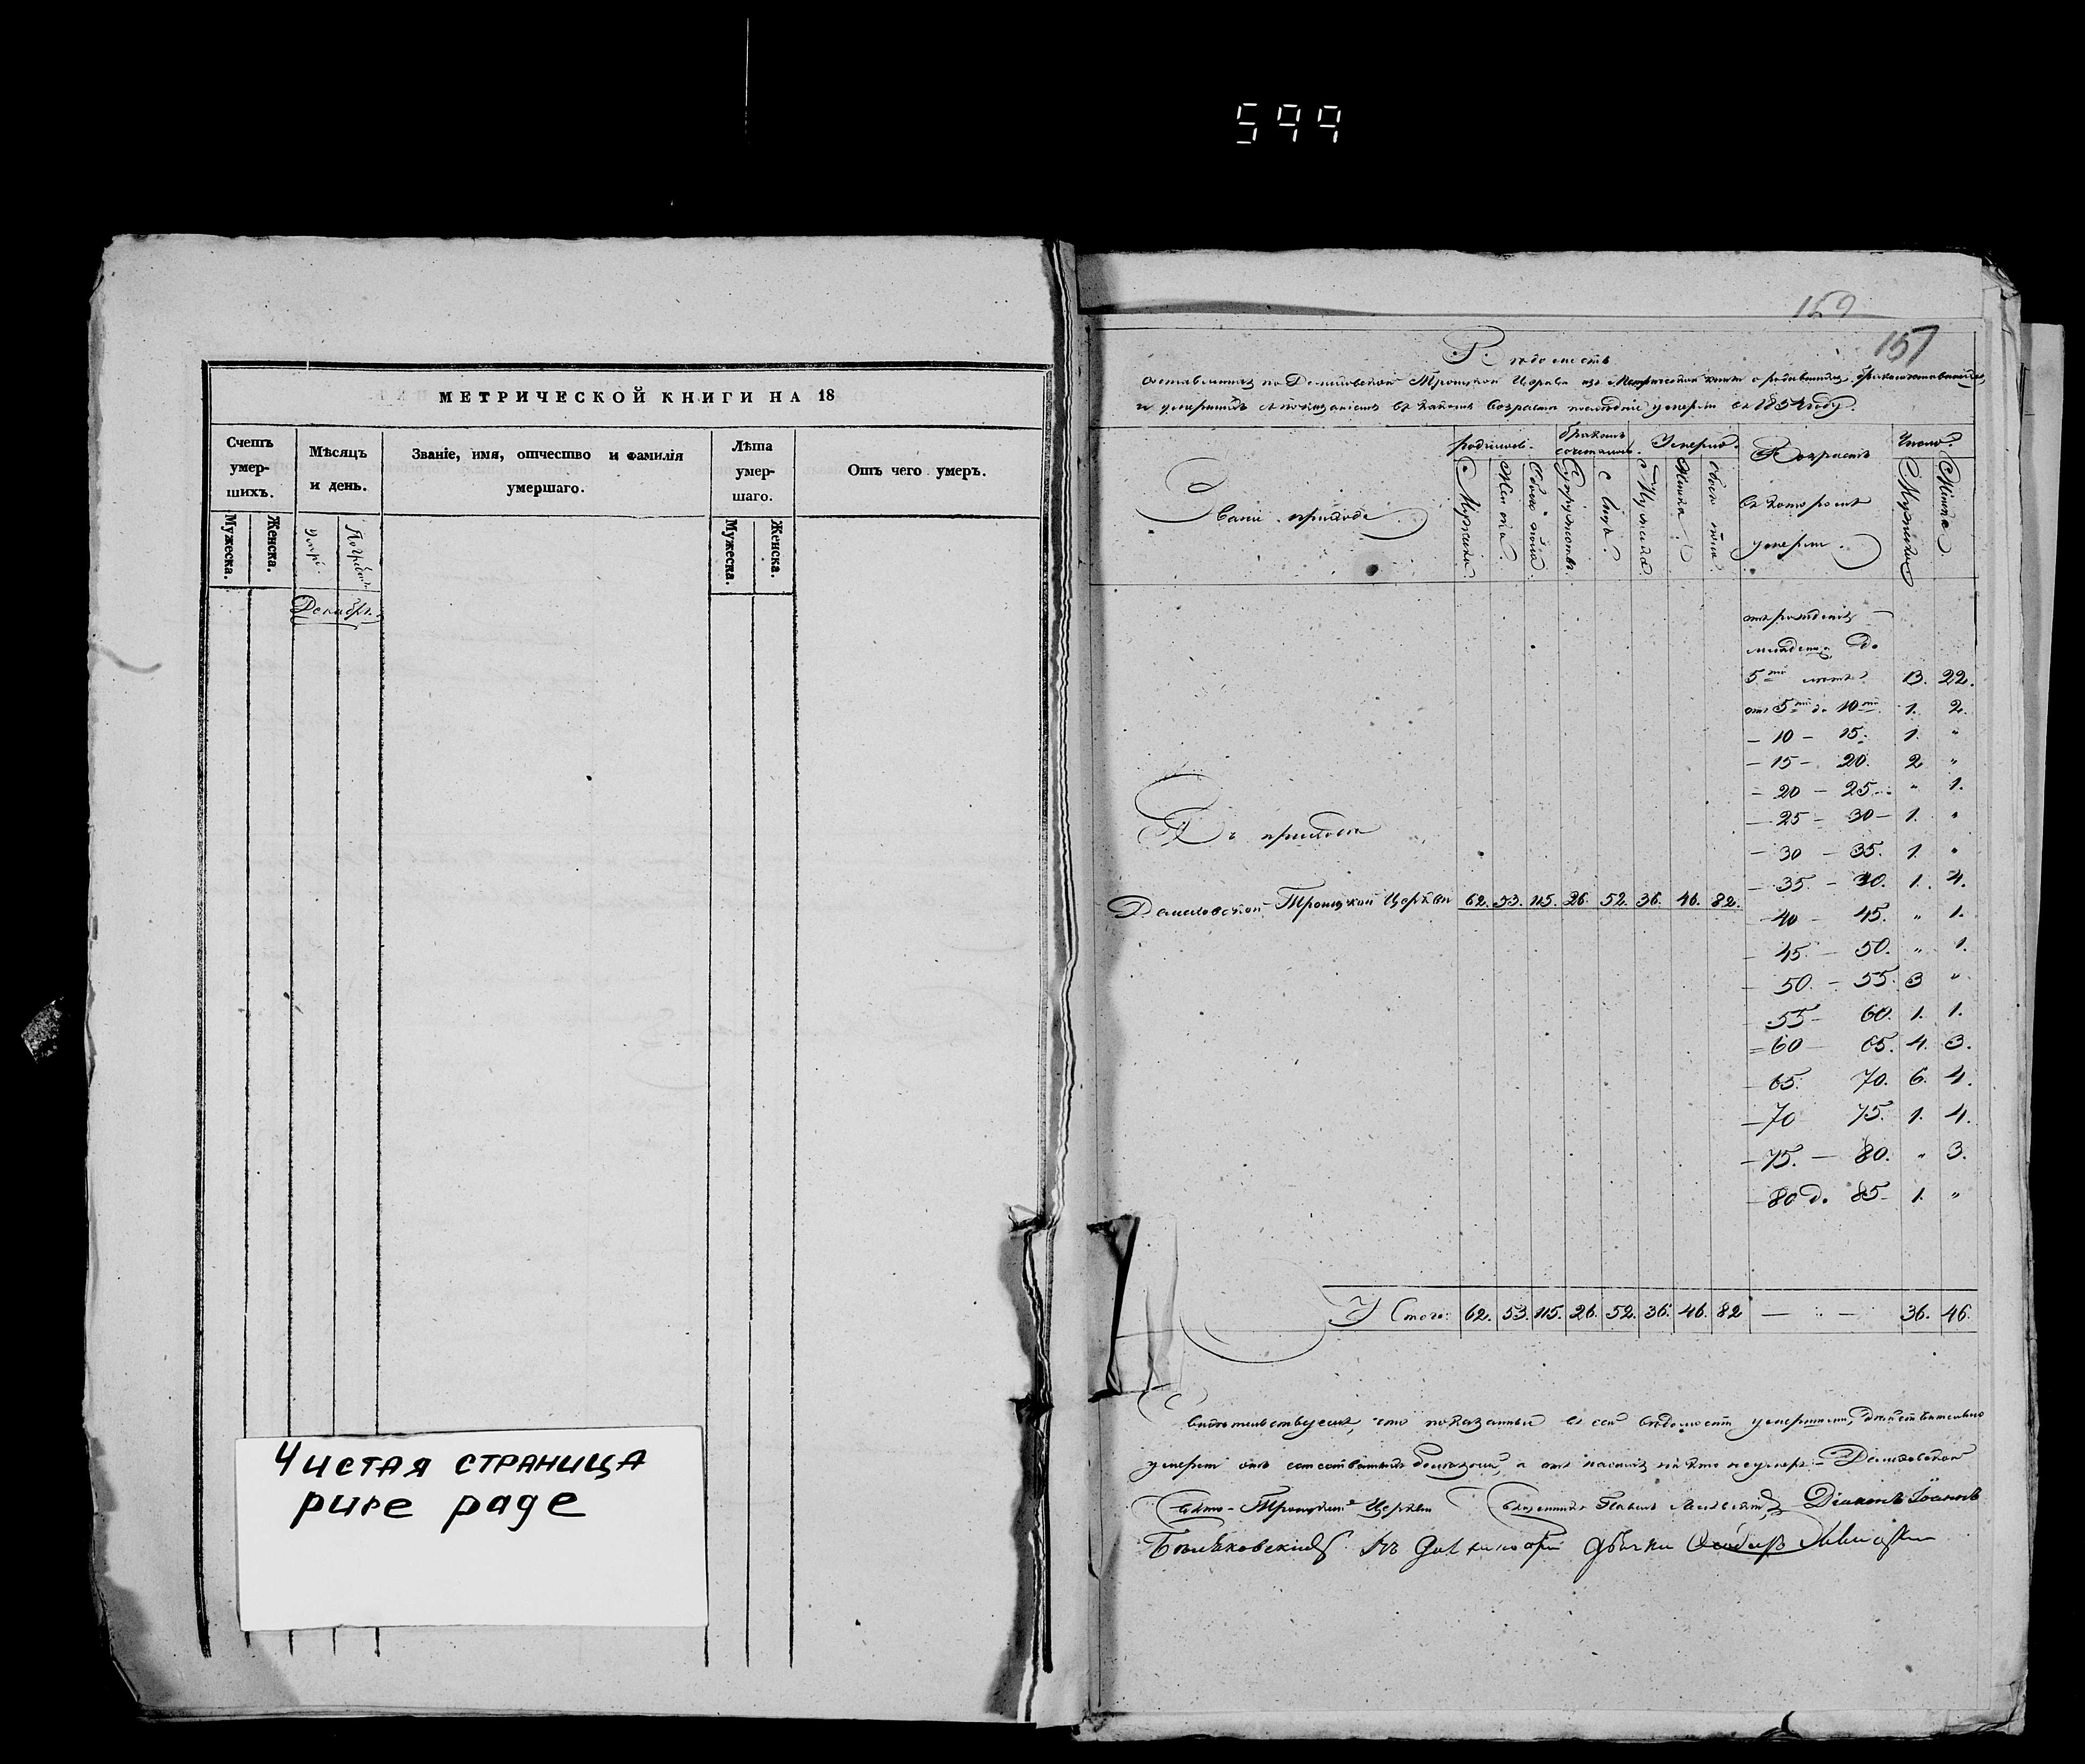 599
МЕТРИЧЕСКОЙ КНИГИ НА 18
Счетъ умер- шихъ.
Мѣсяцъ и день.
Званіе, имя, отчество и фамилія умершаго.
Лѣта умер- шаго.
Отъ чего умеръ.
Мужеска.
Женска.
Мужеска.
Женска.
Декабрь
Чистая страница
pure page
152
157
Вѣдомость
составленная по Демидовской Троицкой Церкви изъ Метрической книги о родившихся, бракосочетавшихся,
и умершихъ съ показаніемъ въ какомъ возрастѣ послѣдніе умерли въ 1854 году.
родилось.
бракомъ сочеталось.
Умерло.
Возрастъ въ которомъ умерли.
Число.
Званіе прихода.
Мужска.
Женска.
Обоего пола.
Супружествъ.
Лицъ.
Мужска.
Женска.
Обоего пола.
Мужска
Женска.
отъ рожденія
младенца до
5ти лѣтъ 13. 22.
отъ 5ти до 10ти 1. 2.
– 10 – 15. 1. "
– 15 – 20. 2 "
– 20 – 25. " 1.
– 25 – 30 – 1. "
Въ приходѣ
– 30 – 35. 1. "
– 35. – 40. 1. 4.
Демидовской Троицкой Церкви 62. 53. 115. 26. 52. 36. 46. 82.
– 40 – 45. " 1.
– 45. – 50. " 1.
– 50. – 55. 3 "
– 55 – 60. 1. 1.
– 60 – 65. 4. 3.
– 65. 70. 6. 4.
– 70 75. 1. 4.
– 75. – 80. " 3.
– 80 до 85 – 1. "
Итого: 62. 53. 115. 26. 52. 36. 46. 82 — : — 36. 46.
Свидѣтельствуемъ, что показанные въ сей вѣдомости умершими, дѣйствительно
умерли отъ болѣзней, а отъ никто неумеръ. – Демидовской
Свято-Троицкой Церкви Священникъ Павелъ Діаконъ Іоаннъ